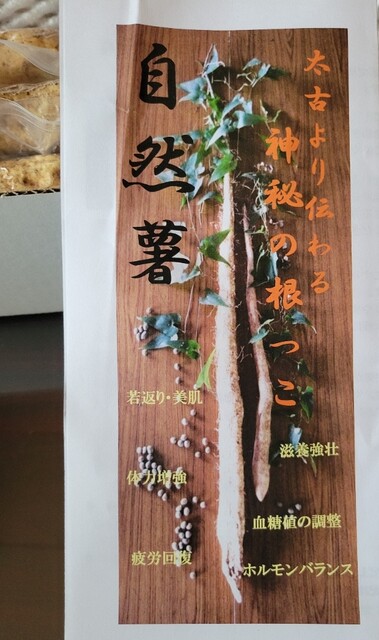 太古より伝わる
神秘の根っこ
自然薯
若返り・美肌
体力増強
疲労回復
滋養強壮
血糖値の調整
ホルモンバランス